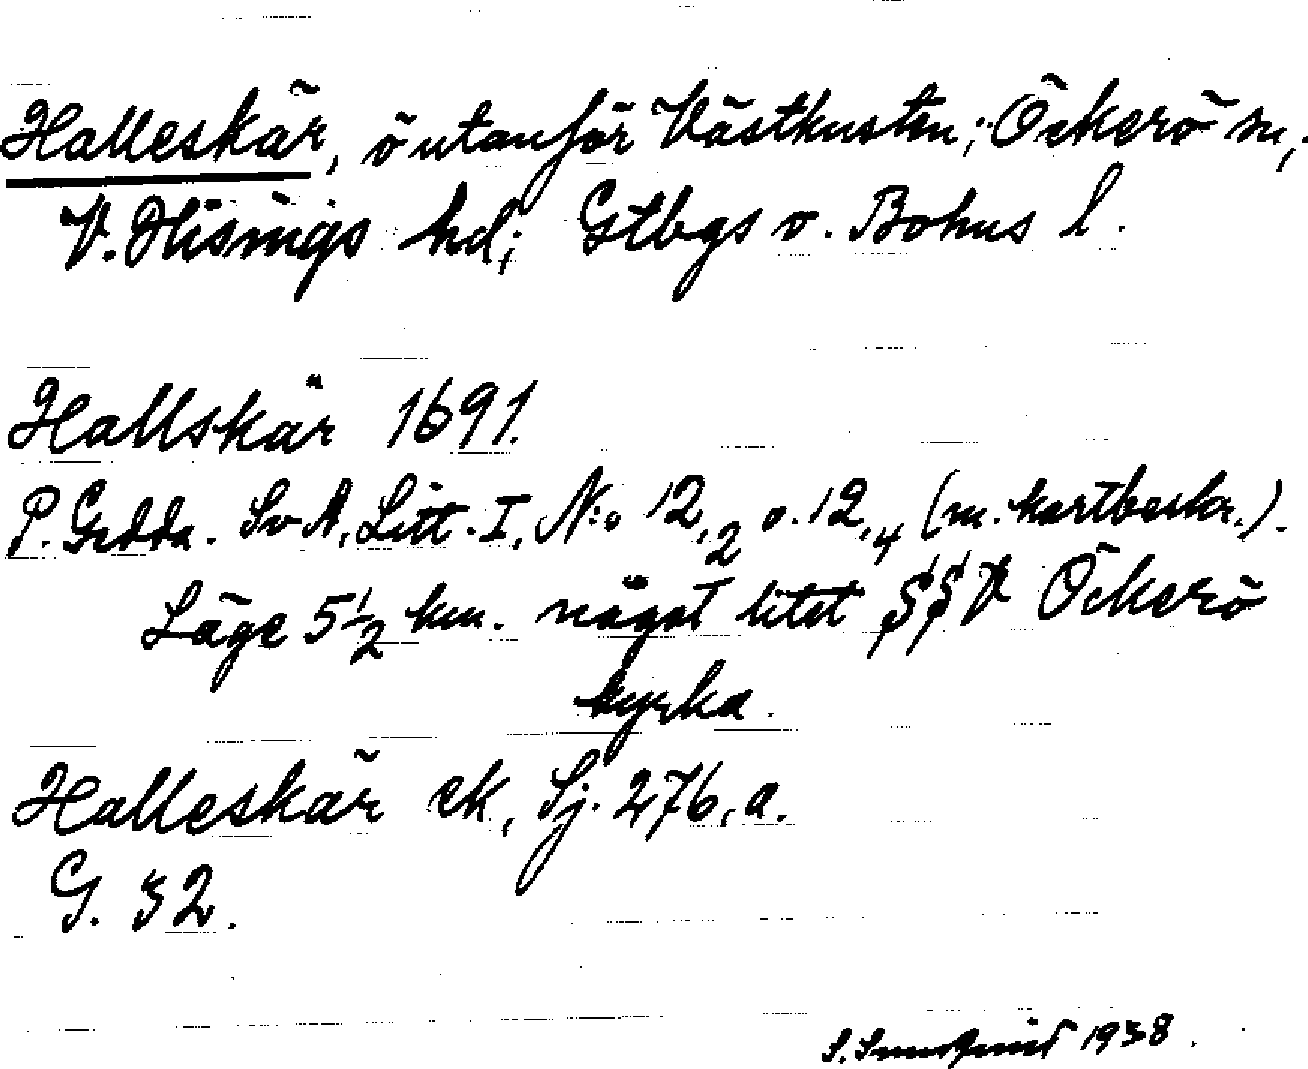 Halleskär, ö utanför Västkusten; Öckerö sn,
V. Hisings hd; Gtbgs o. Bohus l.
Hallskär 1691.
P. Gedda. Sv A, Litt. I, N:o 12,2 o. 12,4 (m. kartbeskr.).
Läge 5 1/2 km. något litet SSV Öckerö
kyrka.
Halleskär ek, Sj. 276, a.
G. 32.
S. 1938.